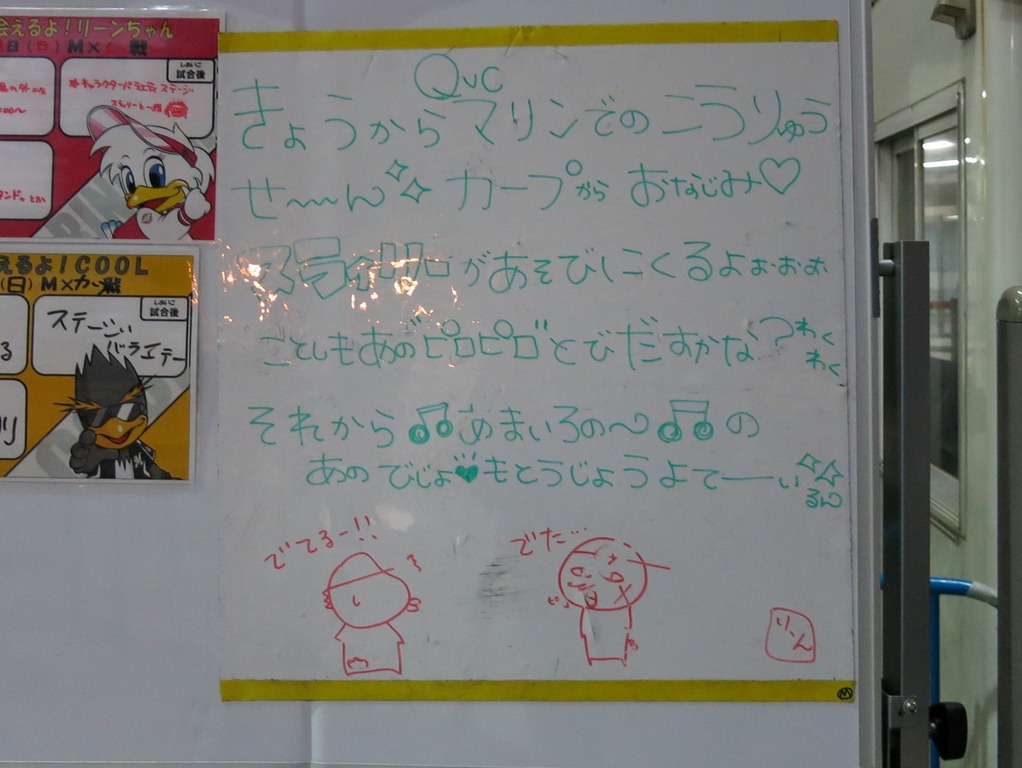 会えるよ！リーンちゃん
日 M× 戦
しあいご
試合後
キャラクターバラエティステージ
えるよ！COOL
(日) M×カープ戦
しあいご
試合後
ステージ
バラエテー
QVC
きょうから マリンでの こうりゅう
せ〜〜ん カープから おなじみ♡
があそびにくるよぉぉぉ
ことしもあのピロピロ とびだすかな？わく
わく
それから♫あまいろの〜♫の
あの でじょ♥もとうじょうよてーーい
るん
でてるー!!
でた…
りーん